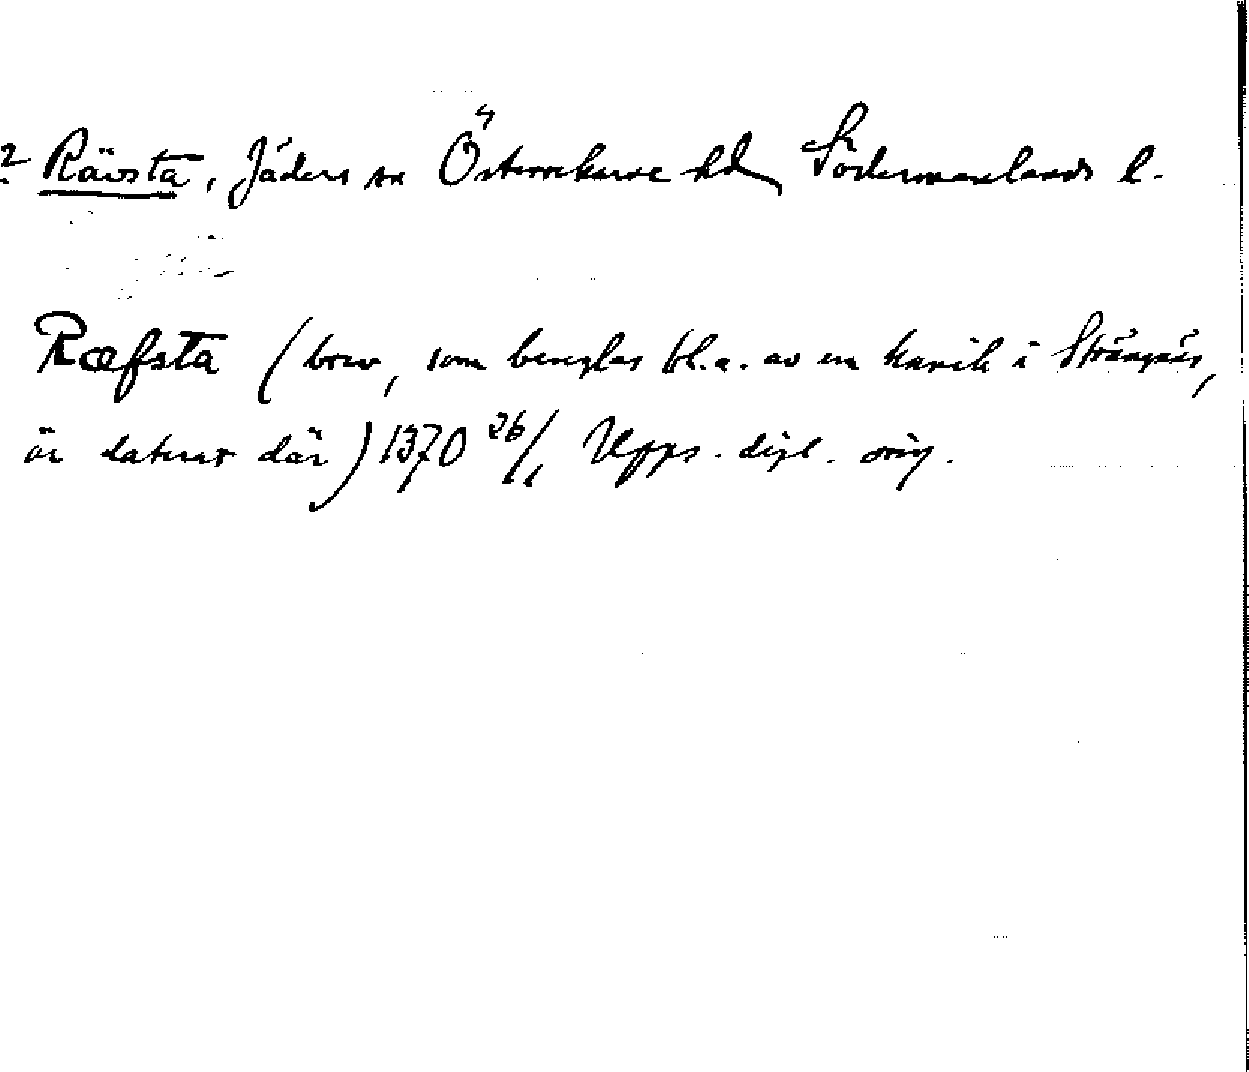 ? Rävsta, Jäders sn Österrekarne hd, Södermanlands l.
Ræfsta (brev, som beseglas bl.a. av en kanik i Strängnäs,
är daterat där) 1370 26/1 Upps. dipl. orig.